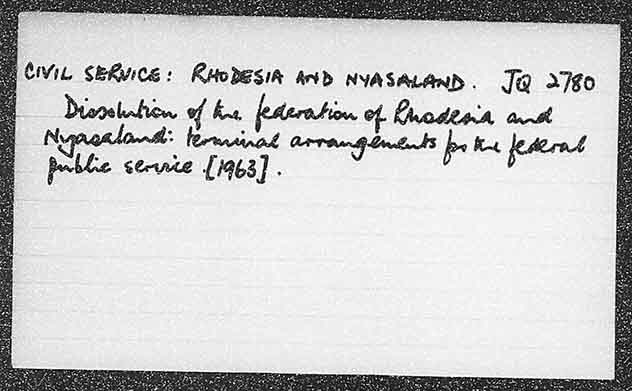 CIVIL SERVICE: RHODESIA AND NYASALAND. JQ 2780
Dissolution of the federation of Rhodesia and
Nyasaland: terminal arrangements for the federal
public service. [1963].